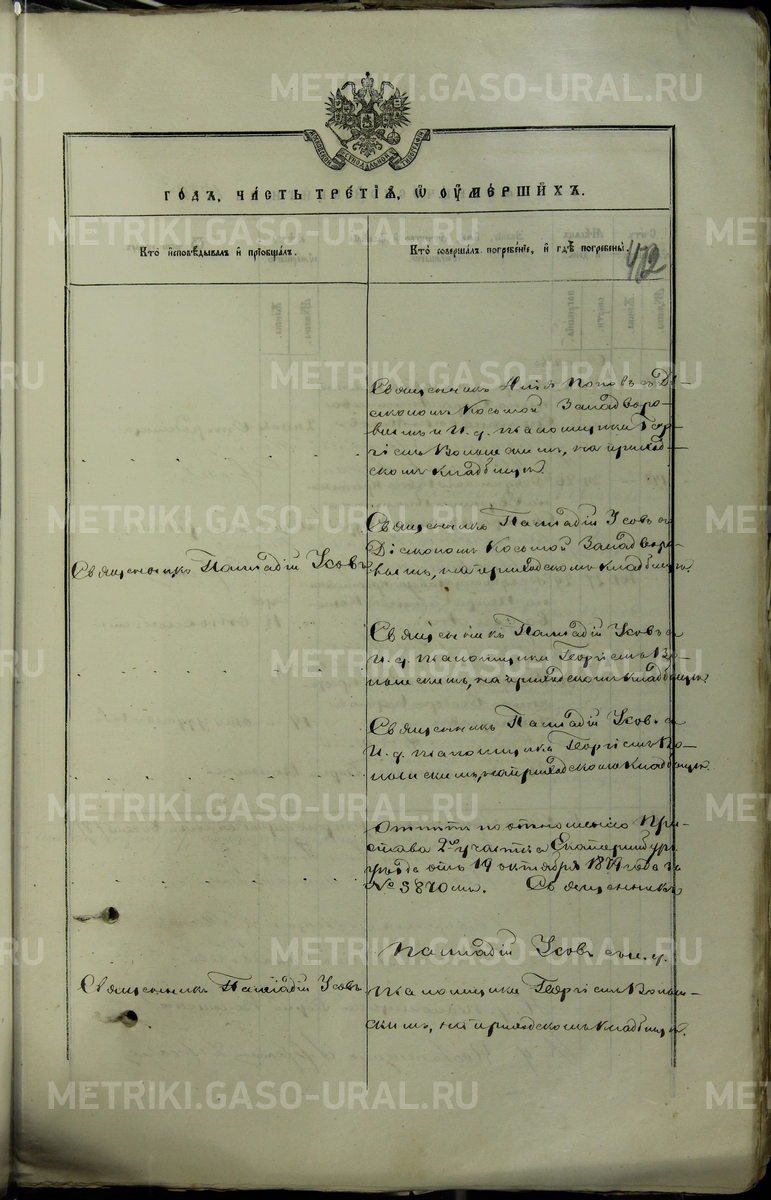 METRIKI.GASO-URAL.RU
годъ, часть третїѧ, ѡ оумершихъ.
Кто исповѣдывалъ и прїобщалъ.
Кто совершалъ погребенїе, и гдѣ погребены.
472
Священникъ Поповъ съ Дї-
акономъ Косьмой Западворо-
вымъ и И. д. псаломщика Геор-
гіемъ на приход-
скомъ кладбищѣ.
Священникъ Палладій Усовъ
Священникъ Палладій Усовъ съ
Діакономъ Косьмой Западворо-
вымъ, на приходскомъ кладбищѣ.
Священникъ Палладій Усовъ съ
И. д. псаломщика Георгіемъ
на приходскомъ кладбищѣ.
Священникъ Палладій Усовъ съ
И. д. псаломщика Георгіемъ
на приходскомъ кладбищѣ.
по отношенію При-
става 2го участка Екатеринбур.
уѣзда отъ 19 октября 1879 года за
№ 3870мъ. Священникъ
Палладій Усовъ съ и. д.
Священникъ Палладій Усовъ
псаломщика Георгіемъ
на приходскомъ кладбищѣ.